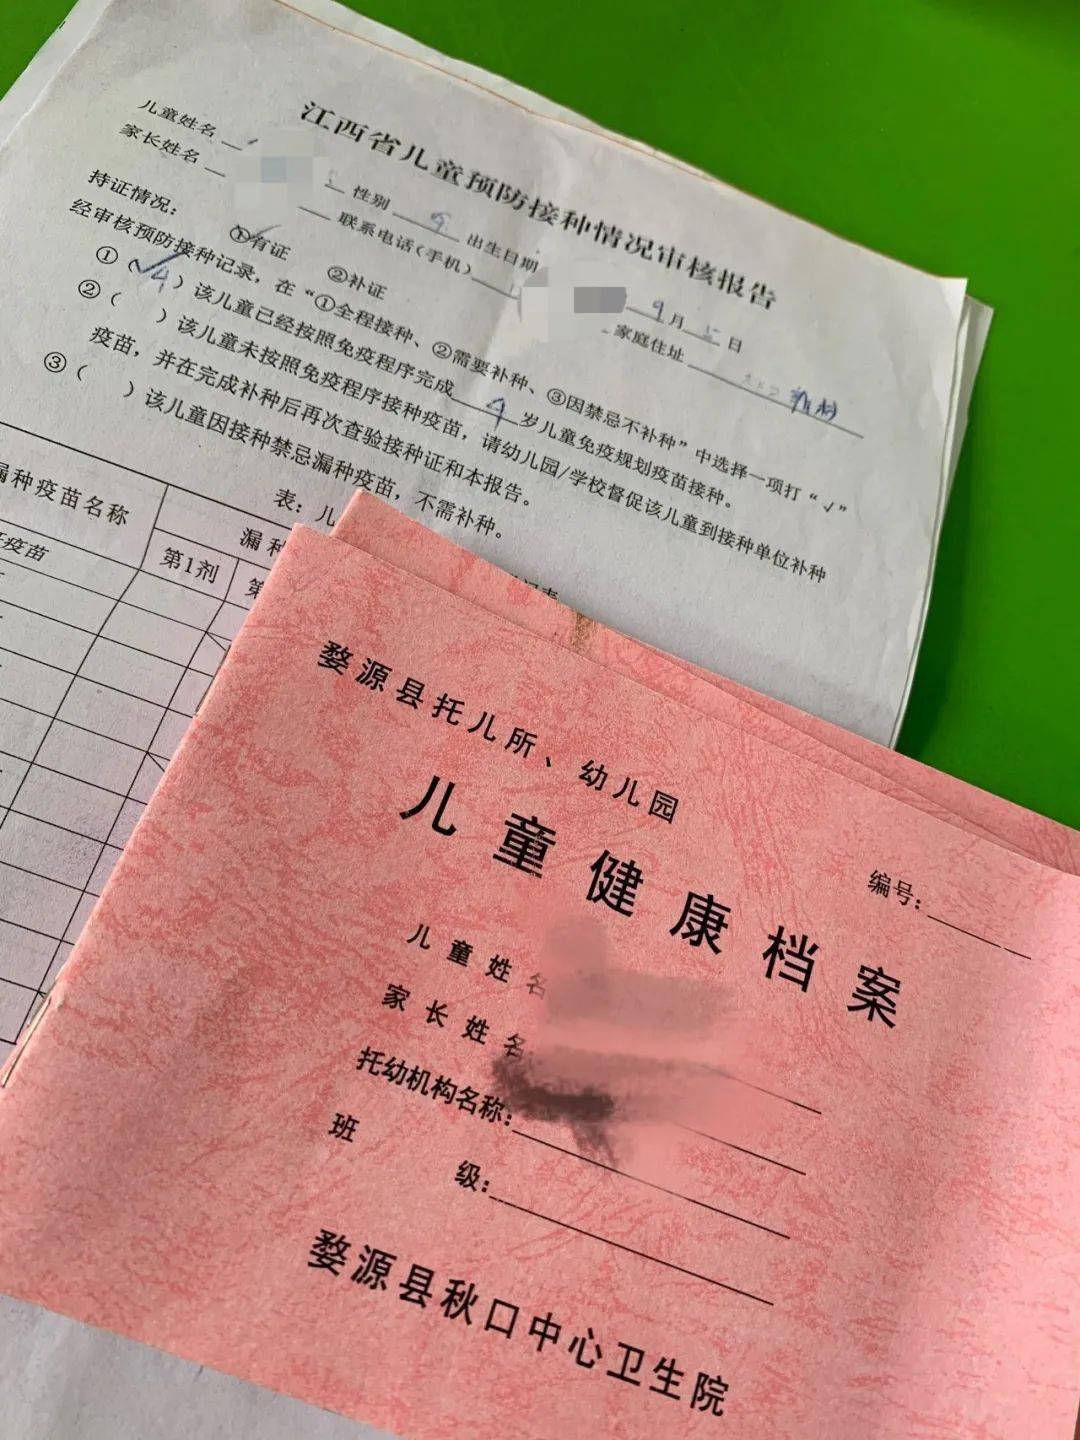 江西省儿童预防接种情况审核报告
儿童姓名 性别 出生日期 9月 日
家长姓名 联系电话(手机) 家庭住址
持证情况： ①有证 ②补证
经审核预防接种记录，在“①全程接种、②需要补种、③因禁忌不补种”中选择一项打“√”
①(√)该儿童已经按照免疫程序完成 4 岁儿童免疫规划疫苗接种。
②( )该儿童未按照免疫程序接种疫苗，请幼儿园/学校督促该儿童到接种单位补种
疫苗，并在完成补种后再次查验接种证和本报告。
③( )该儿童因接种禁忌漏种疫苗，不需补种。
表：儿
漏种疫苗名称 漏种
第1剂 第
疫苗
婺源县托儿所、幼儿园
儿童健康档案
编号：
儿童姓名
家长姓名
托幼机构名称：
班级：
婺源县秋口中心卫生院